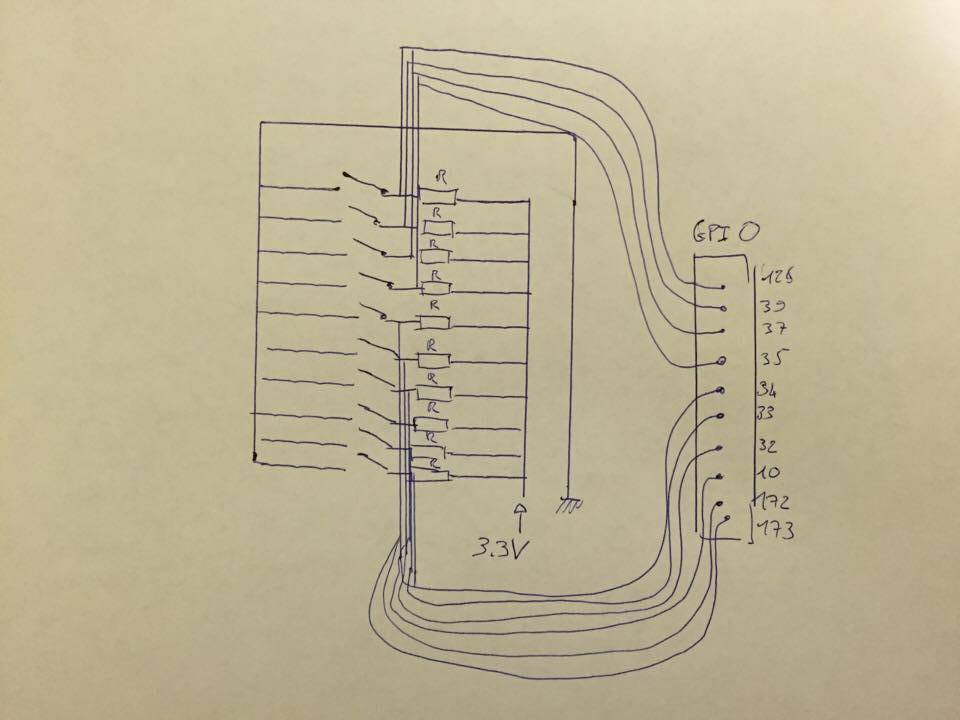 R
R
R
R
R
R
R
R
R
R
3.3V
GPIO
126
39
37
35
34
33
32
10
172
173